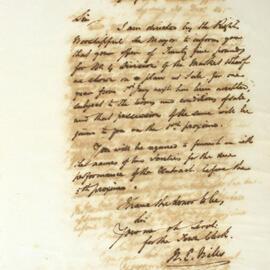 Sir
I am directed by the Right
Worshipful the Mayor to inform you
that your offer of Twenty five pounds
for No 4 Division of the Market Wharf
as shown on a plan at Sale for one
year from 1st July next has been accepted
subject to the terms and conditions of sale,
and that possession of the same will be
given to you on the 1st proximo.
You will be required to furnish in with
the names of two sureties for the due
performance of the Contract before the
5th proximo.
I have the honor to be,
Sir
Your mo obt Servt
for the Town Clerk